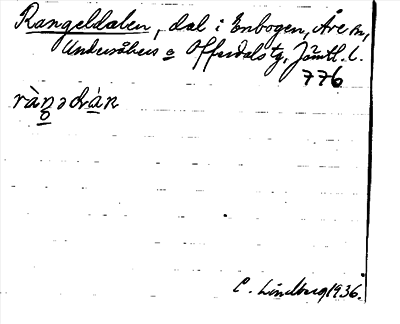 Rangeldalen, dal i Enbogen, Åre sn,
Undersåkers o Offerdals tg, Jämtl. l.
776
rànədrán
C. Lindberg 1936.